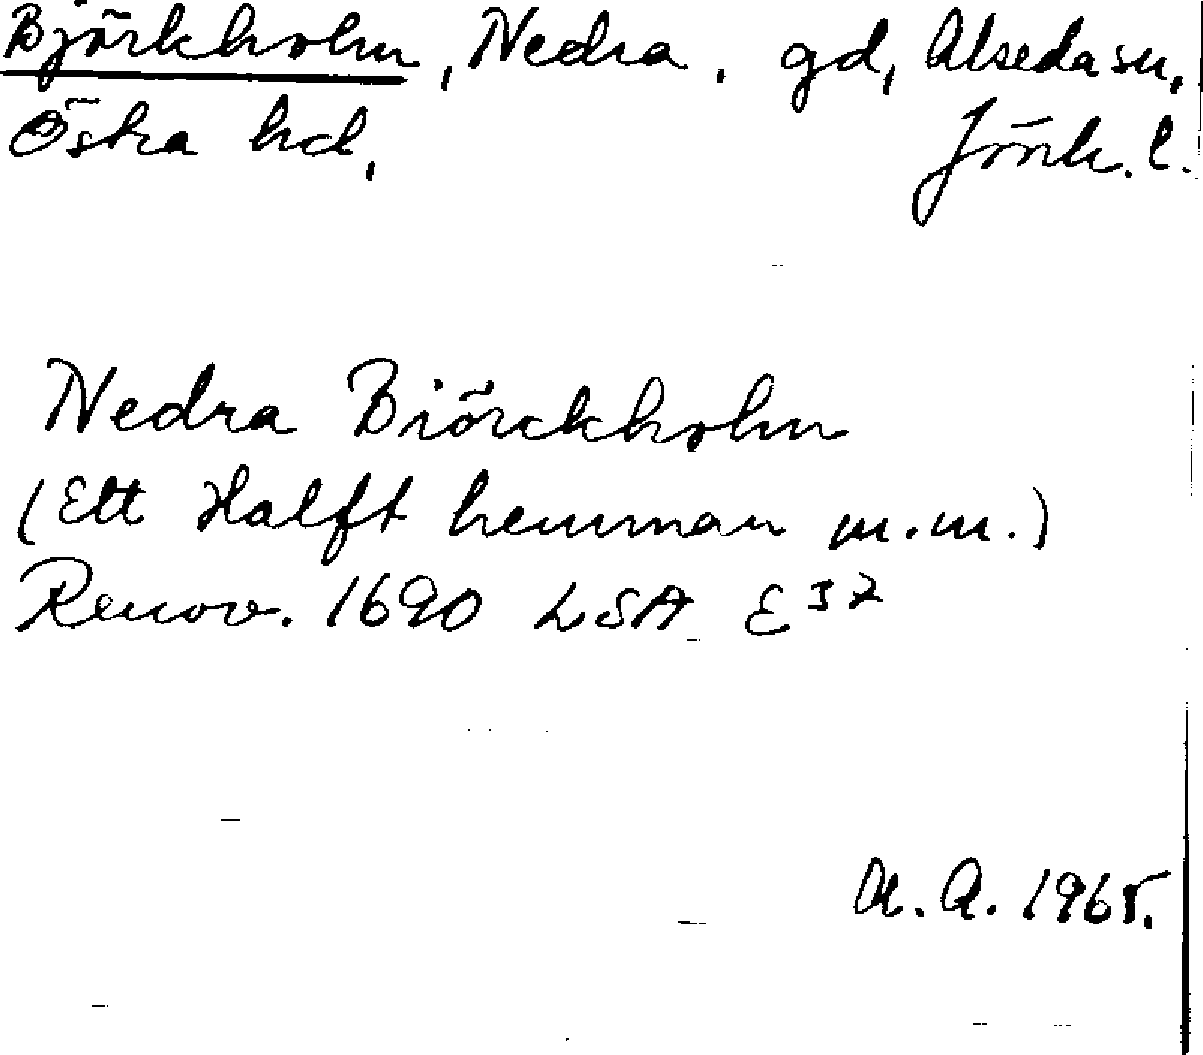 Björkholm, Nedra, gd, Alseda sn,
Östra hd, Jönk. l.
Nedra Biörckholm
(Ett Halft hemman m.m.)
Renov. 1690 LSA E 37
A. A. 1965.